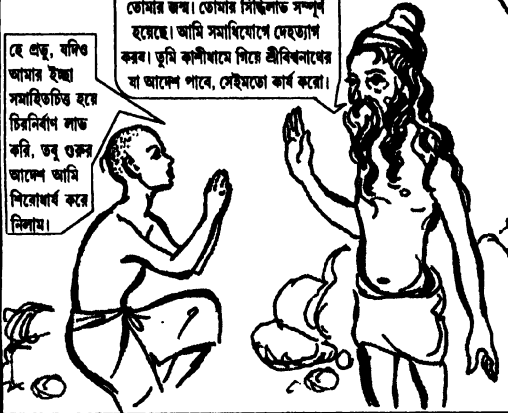 তোমার জন্ম। তোমার সিদ্ধিলাভ সম্পূর্ণ
হয়েছে। আমি সমাধিযোগে দেহত্যাগ
করব। তুমি কাশীধামে গিয়ে শ্রীবিশ্বনাথের
যা আদেশ পাবে, সেইমতো কার্য করো।
হে প্রভু, যদিও
আমার ইচ্ছা
সমাহিতচিত্ত হয়ে
চিরনির্বাণ লাভ
করি, তবু গুরুর
আদেশ আমি
শিরোধার্য করে
নিলাম।